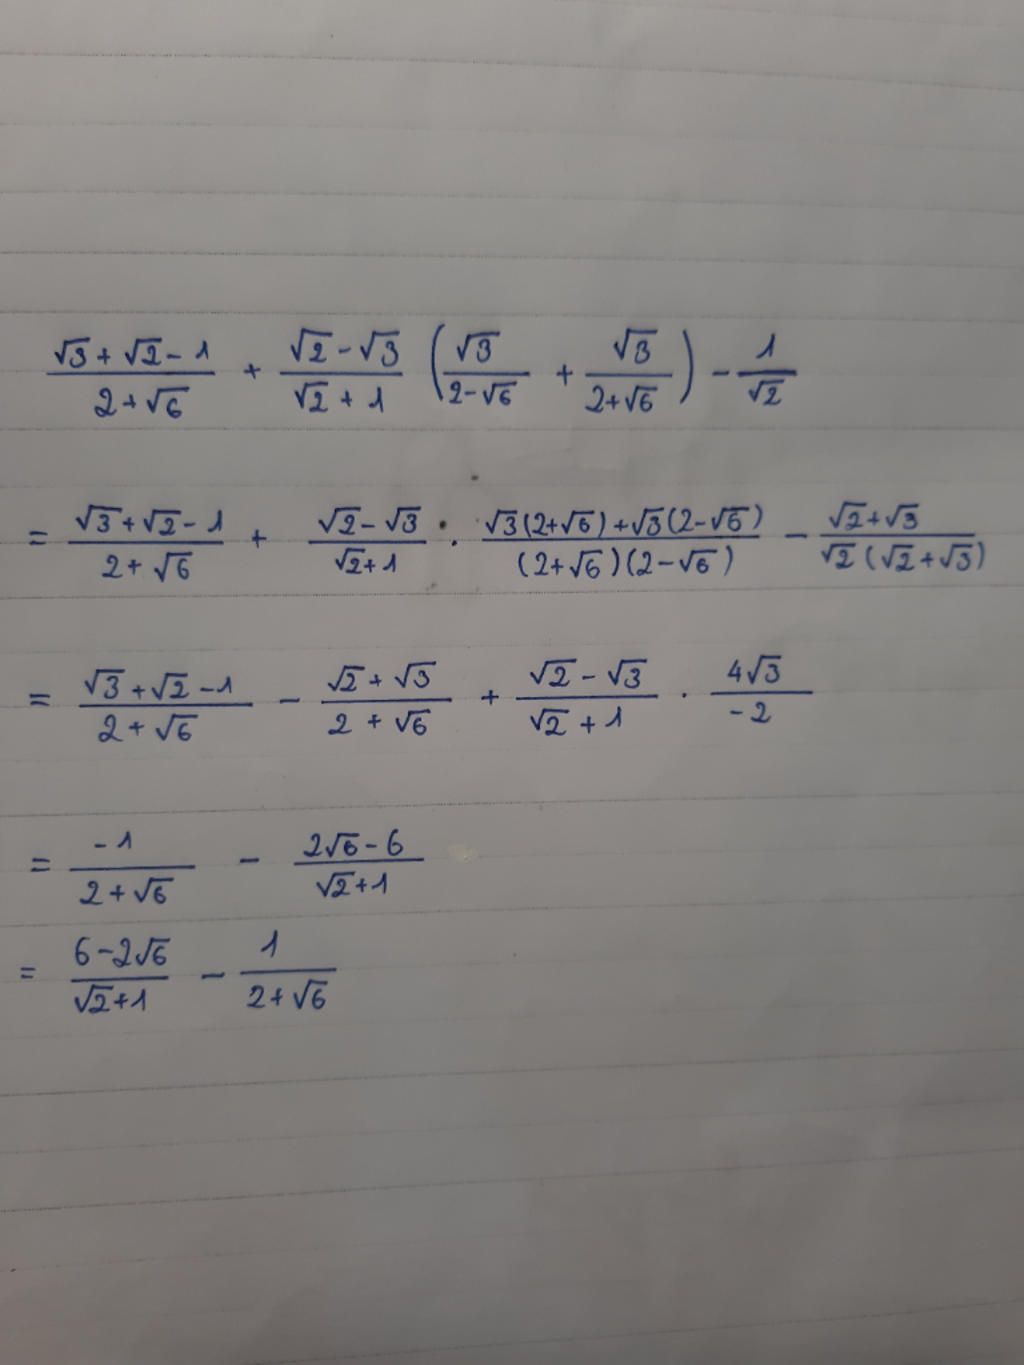 (√3 + √2 - 1)/(2 + √6) + (√2 - √3)/(√2 + 1) (√3/(2 - √6) + √3/(2 + √6)) - 1/√2
= (√3 + √2 - 1)/(2 + √6) + (√2 - √3)/(√2 + 1) . (√3(2 + √6) + √3(2 - √6))/((2 + √6)(2 - √6)) - (√2 + √3)/(√2(√2 + √3))
= (√3 + √2 - 1)/(2 + √6) - (√2 + √3)/(2 + √6) + (√2 - √3)/(√2 + 1) . 4√3/-2
= -1/(2 + √6) - (2√6 - 6)/(√2 + 1)
= (6 - 2√6)/(√2 + 1) - 1/(2 + √6)